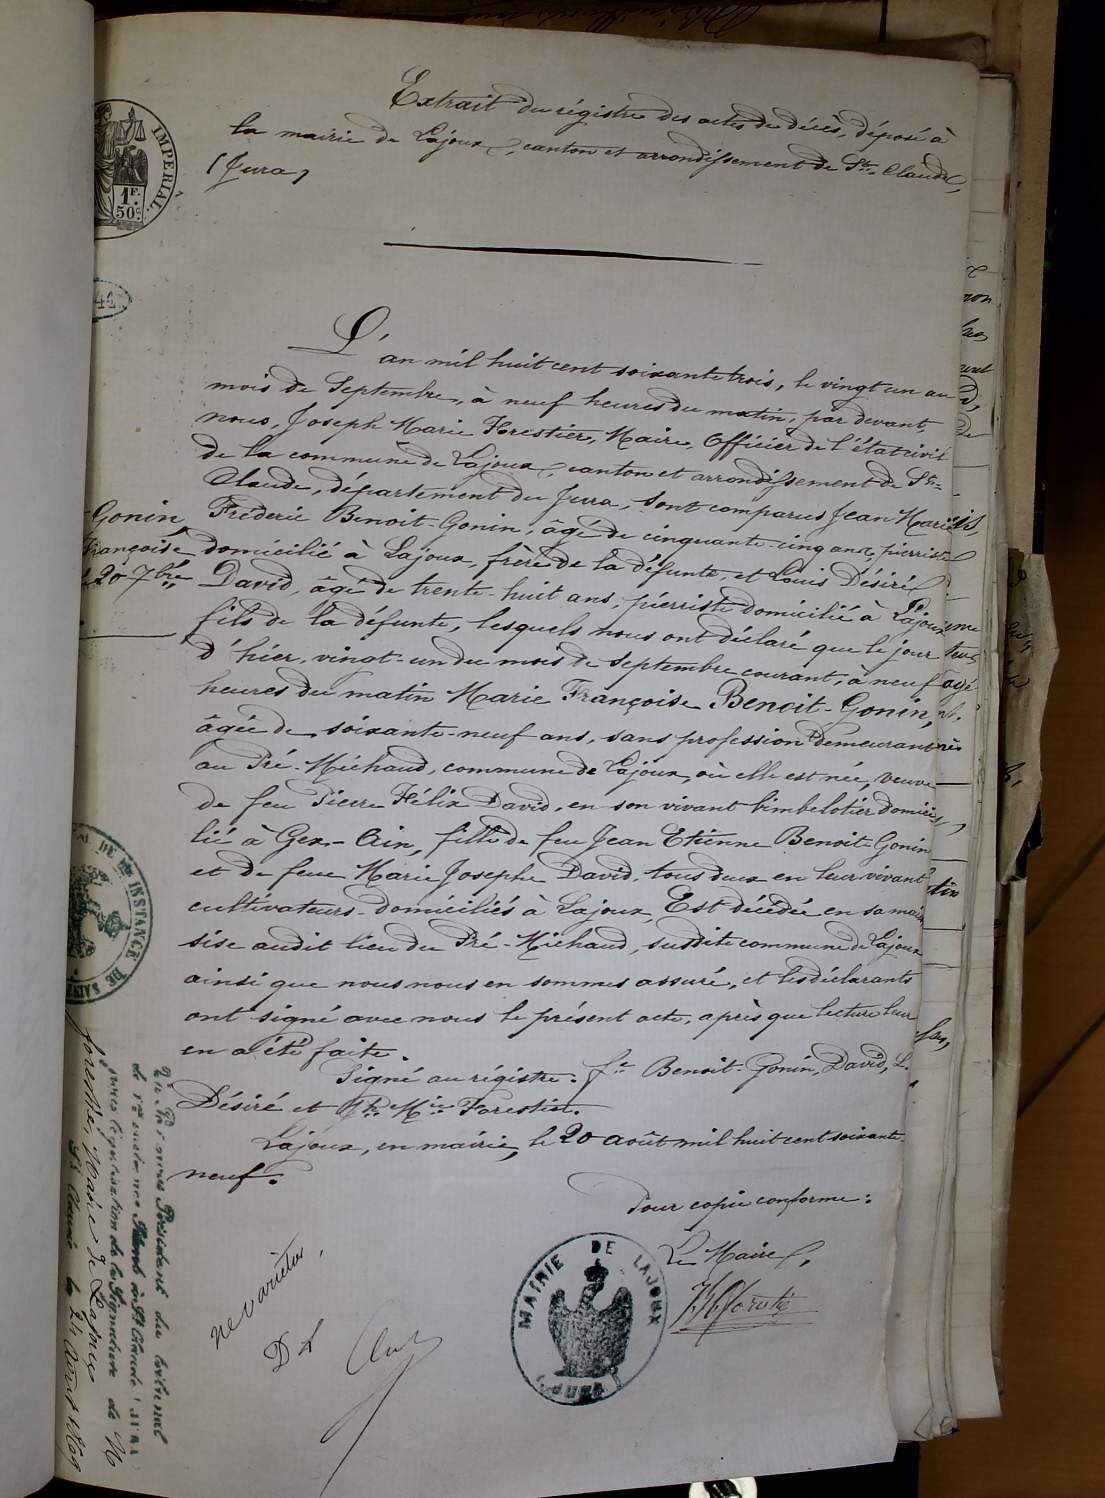 Extrait du régistre des actes de décès, déposé à
la mairie de Lajoux, canton et arrondissement de St. Claude,
(Jura)
IMPERIAL.
1F.
50c.
44
L'an mil huit cent soixante trois, le vingt un au
mois de Septembre, à neuf heures du matin, par devant
nous, Joseph Marie Forestier, Maire, Officier de l'état civil
de la commune de Lajoux, canton et arrondissement de St=
Claude, département du Jura, sont comparus Jean Marie
Fréderic Benoit-Gonin, âgé de cinquante-cinq ans, pierriste
domicilié à Lajoux, frère de la défunte, et Louis Désiré
David, âgé de trente-huit ans, pierriste domicilié à Lajoux
fils de la défunte, lesquels nous ont déclaré que le jour
d'hier, vingt-un du mois de Septembre courant, à neuf
heures du matin Marie Françoise Benoit-Gonin,
âgée de soixante-neuf ans, sans profession demeurant
au Pré-Michaud, commune de Lajoux, où elle est née, veuve
de feu Pierre Félix David, en son vivant bimbelotier domici
lié à Gex-Ain, fille de feu Jean Etienne Benoit-Gonin
et de feue Marie Josephe David, tous deux en leur vivant
cultivateurs-domiciliés à Lajoux, Est décédée en sa maison
sise audit lieu du Pré-Michaud, susdite commune de Lajoux
ainsi que nous nous en sommes assuré, et les déclarants
ont signé avec nous le présent acte, après que lecture leur
en a été faite.
Signé au régistre: fc Benoit-Gonin, David, L.
Désiré et Jh. Mie Forestier.
Lajoux, en mairie, le 20 août mil huit cent soixante-
neuf.
Pour copie conforme:
Le Maire,
Gonin,
Françoise
20 7bre
DE 1ère INSTANCE DE SAINT
MAIRIE DE LAJOUX
(JURA)
ne varietur,
Président du tribunal
de 1ère instance séant à St Claude Jura
légalisation de la signature de M
forestier, Maire de Lajoux
St Claude le 24 Août 1869